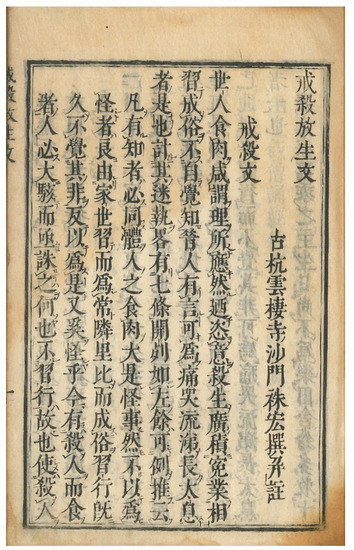 戒殺放生文
古杭雲棲寺沙門袾宏撰并註
戒殺文
世人食肉咸謂理所應然廼恣意殺生廣積寃業相
習成俗不自覺知昔人有言可為痛哭流涕長太息
者是也計其迷執畧有七條開列如左餘可例推云
凡有知者必同體人之食肉大是怪事然不以為
怪者良由家世習而為常隣里比而成俗習行既
久不覺其非反以為是又奚怪乎今有殺人而食
者人必大駭而亟誅之何也不習行故也使殺人
戒殺放生文
一